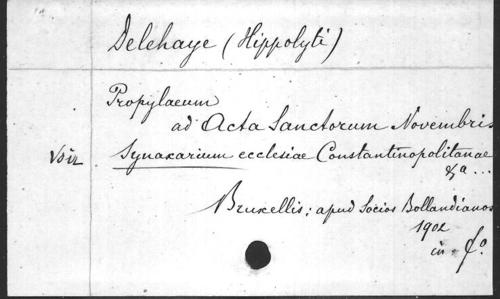 Delehaye (Hippolyti)
Propylaeum
ad Acta Sanctorum Novembris
Voir Synaxarium ecclesiae Constantinopolitanae
&a ...
Bruxellis; apud Socios Bollandianos
1902
in-fo.